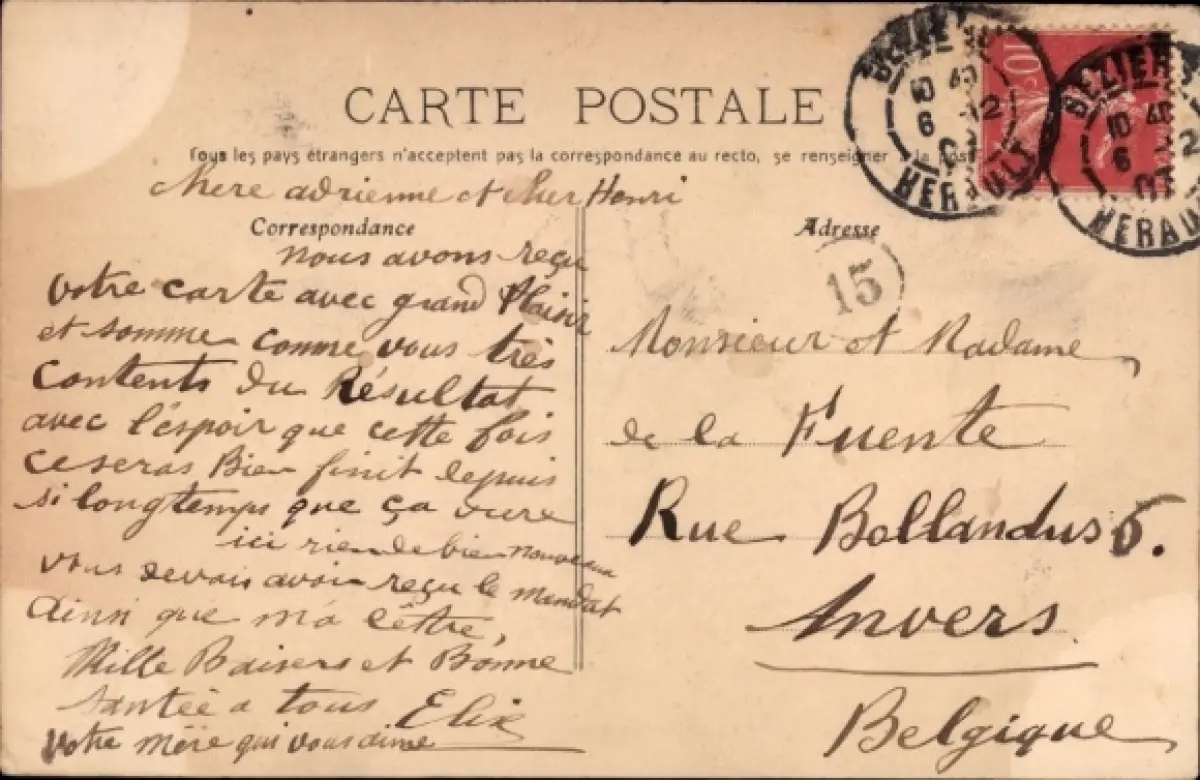 CARTE POSTALE
Tous les pays étrangers n'acceptent pas la correspondance au recto, se renseigner à la poste
chere adrienne et cher Henri
Correspondance
nous avons reçu
votre carte avec grand Plaisir
et somme comme vous très
contents du Résultat
avec l'éspoir que cette fois
ce seras Bien finit depuis
si longtemps que ça dure
ici rien de bien nouveau
vous devais avoir reçu le mandat
ainsi que ma lêttre,
Mille Baisers et Bonne
santée a tous
votre mère qui vous aime
Adresse
15
Monsieur et Madame
de la Fuente
Rue Bollandus 6.
Anvers
Belgique
10c
BEZIERS
10 40
6 -12
07
HERAULT
BEZIERS
10 40
6 -12
07
HERAULT